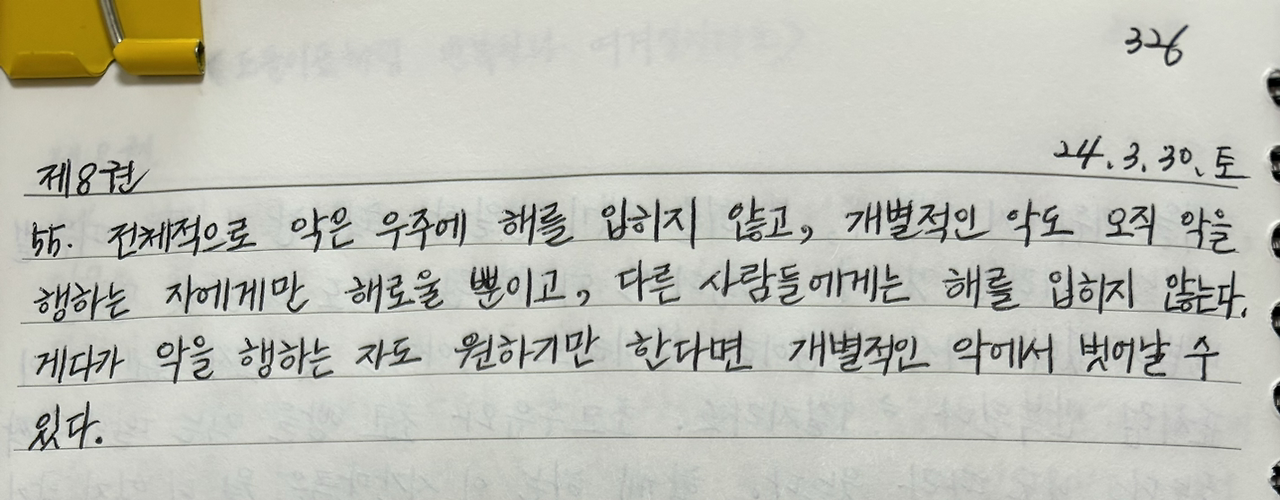 326
24.3.30.토
제8권
55. 전체적으로 악은 우주에 해를 입히지 않고, 개별적인 악도 오직 악을
행하는 자에게만 해로울 뿐이고, 다른 사람들에게는 해를 입히지 않는다.
게다가 악을 행하는 자도 원하기만 한다면 개별적인 악에서 벗어날 수
있다.